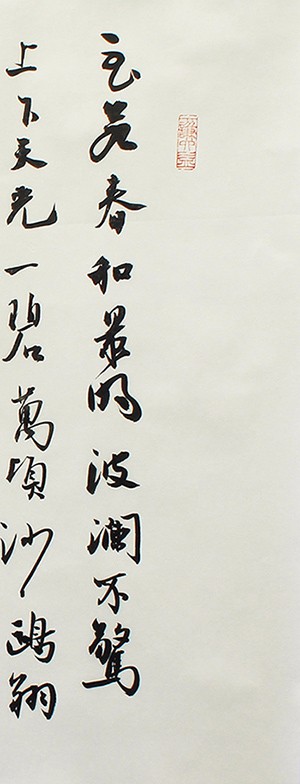 至若春和景明波瀾不驚
上下天光一碧萬頃沙鷗翔